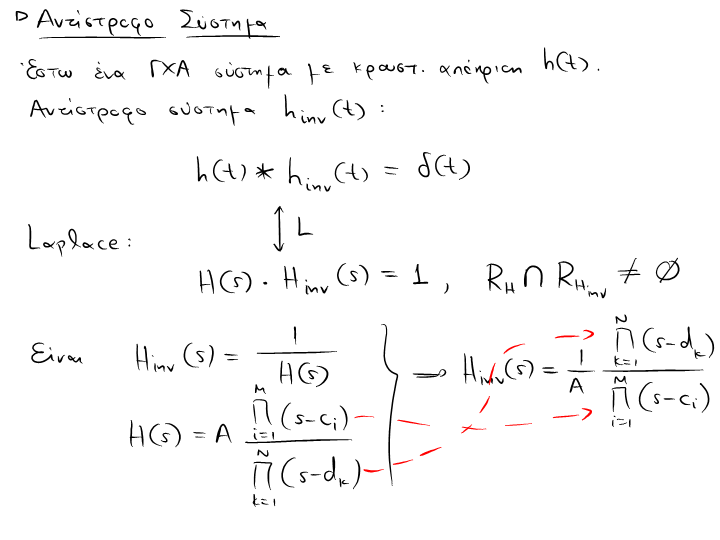 ▷ Αντίστροφο Σύστημα
Έστω ένα ΓΧΑ σύστημα με κρουστ. απόκριση h(t).
Αντίστροφο σύστημα h_{inv}(t) :
h(t) * h_{inv}(t) = δ(t)
↕ L
Laplace :
H(s) · H_{inv}(s) = 1 , R_H ∩ R_{H_{inv}} ≠ ∅
Είναι H_{inv}(s) = \frac{1}{H(s)} } → H_{inv}(s) = \frac{1}{A} \frac{\prod_{k=1}^{N}(s-d_k)}{\prod_{i=1}^{M}(s-c_i)}
H(s) = A \frac{\prod_{i=1}^{M}(s-c_i)}{\prod_{k=1}^{N}(s-d_k)}